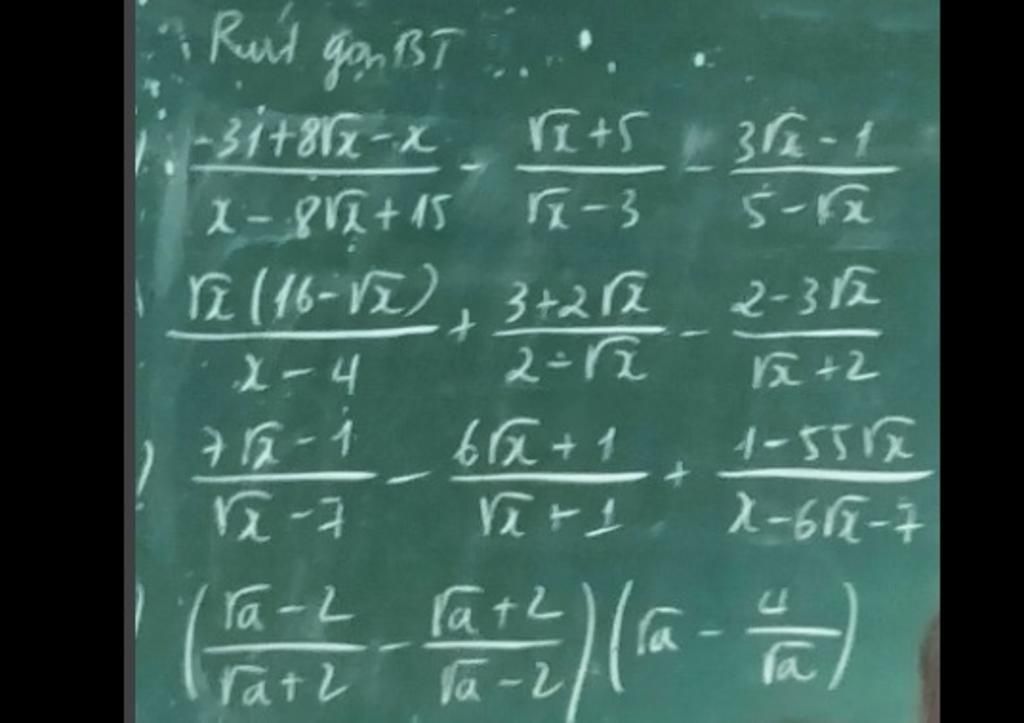 Rút gọn BT
) (-31+8√x-x)/(x-8√x+15) - (√x+5)/(√x-3) - (3√x-1)/(5-√x)
) (√x(16-√x))/(x-4) + (3+2√x)/(2-√x) - (2-3√x)/(√x+2)
) (7√x-1)/(√x-7) - (6√x+1)/(√x+1) + (1-55√x)/(x-6√x-7)
) ((√a-2)/(√a+2) - (√a+2)/(√a-2))(√a - 4/√a)